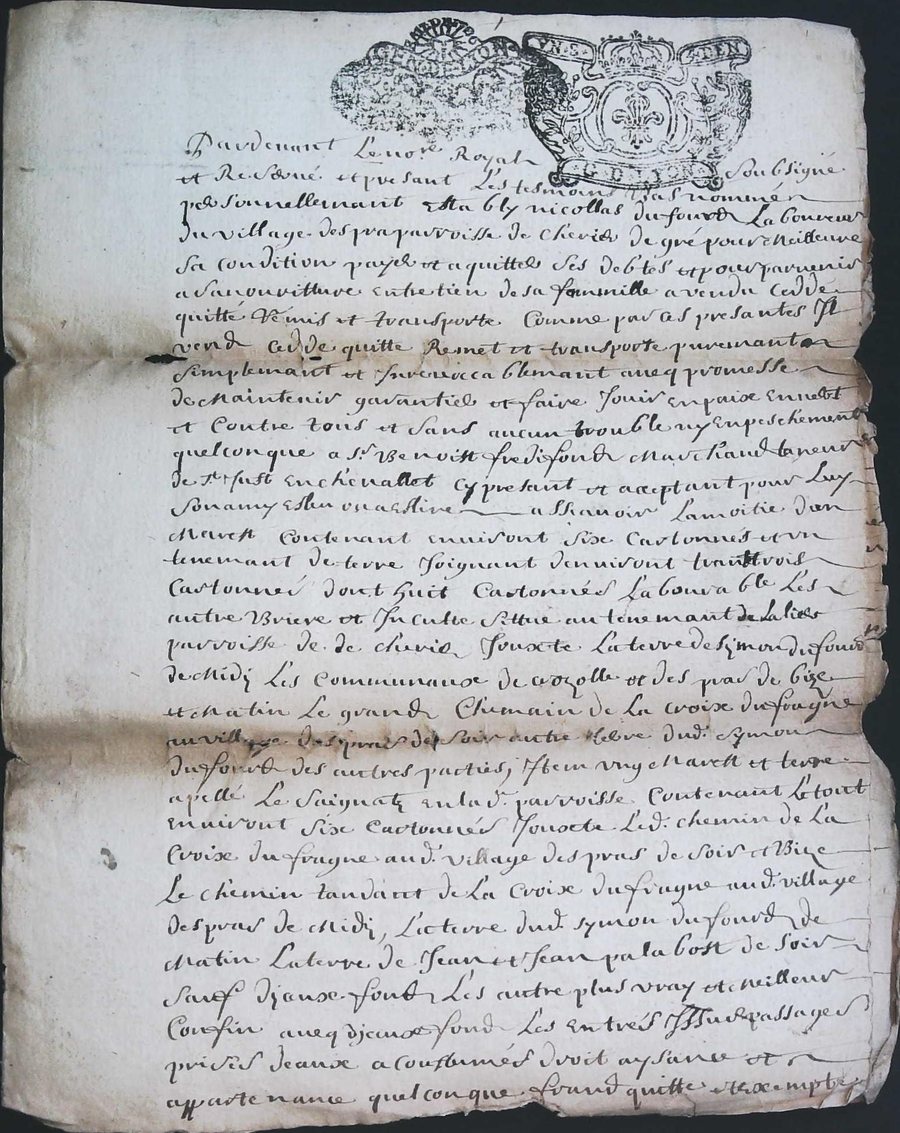 GEN DE LYON
VN S DEN
G D LYON
Pardevant Le nore Royal
et Reservé et presant Les tesmoins bas nommés soubsigné
personnellemant establÿ nicollas du fourd Laboureur
du village des pra parroisse de cherie de gré pour meilleure
sa condition payer et aquitter ses debtes et pour parvenir
a sa nouritture entretien de sa fammille a vendu cedde
quitté Remis et transporte comme par ces presantes Il
vend cedde quitte Remet et transporte puremant et
simplemant et Inrevoccablemant aveq promesse
de Maintenir garantier et faire Jouir en paix envert
et contre tous et sans aucun trouble ny enpeschement
quelconque a sr Benoist fredifond Marchand taneur
de st Just en chevallet cy presant et aceptant pour Luy
son amy eslu ou a eslire assavoir Lamoitie d'un
Marest contenant environt six cartonnés et un
tenemant de terre Joignant denviront trant trois
cartonnés dont huit cartonnés Labourable Les
autre Briere et Inculte sittue au tenemant de La
parroisse de de cherie Jouxte La terre de symon du fourd
de Midÿ Les communaux de et des pras de bize
et Matin Le grand Chemain de La croix du fragne
au village des pras de soir autre terre dud. symon
du fourd des autres parties, Item ung Marest et terre
apellé Le saignat en lad. parroisse contenant Le tout
environt six cartonnés Jouxte Led. chemin de La
croix du fragne aud. village des pras de soir et Bize
Le chemin tandant de La croix du fragne aud. village
des pras de Midÿ, La terre dud. symon du fourd de
Matin La terre de Jean et Jean palabost de soir
sauf djceux fond Les autre plus vray et Meilleur
confin aveq djceux fond Les entrés Issues passages
prises deaux acoustumés droit aysance et
appartenance quelconque franc quitte et exempte